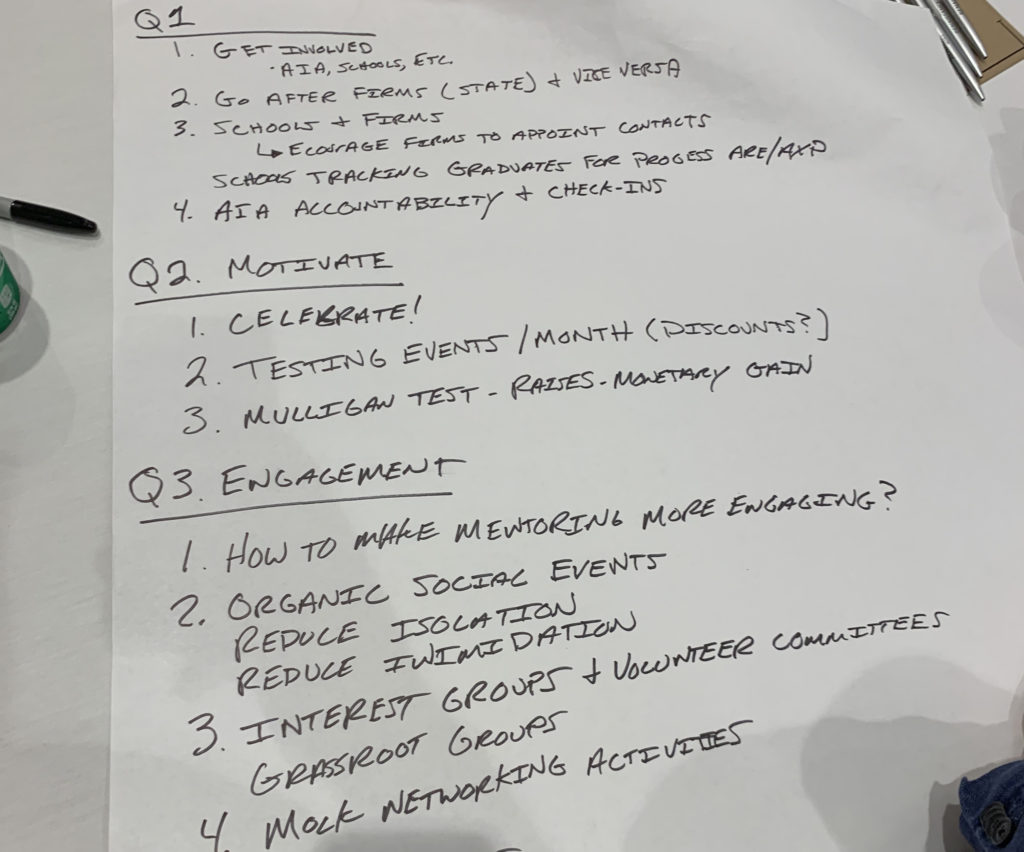 Q1
1. GET INVOLVED
· AIA, SCHOOLS, ETC.
2. GO AFTER FIRMS (STATE) + VICE VERSA
3. SCHOOLS + FIRMS
↳ ECOURAGE FIRMS TO APPOINT CONTACTS
SCHOOLS TRACKING GRADUATES FOR PROGESS ARE/AXP
4. AIA ACCOUNTABILITY + CHECK-INS
Q2. MOTIVATE
1. CELEBRATE!
2. TESTING EVENTS/MONTH (DISCOUNTS?)
3. MULLIGAN TEST - RAISES - MONETARY GAIN
Q3. ENGAGEMENT
1. HOW TO MAKE MENTORING MORE ENGAGING?
2. ORGANIC SOCIAL EVENTS
REDUCE ISOLATION
REDUCE INIMIDATION
3. INTEREST GROUPS + VOLUNTEER COMMITTEES
GRASSROOT GROUPS
4. MOCK NETWORKING ACTIVITIES